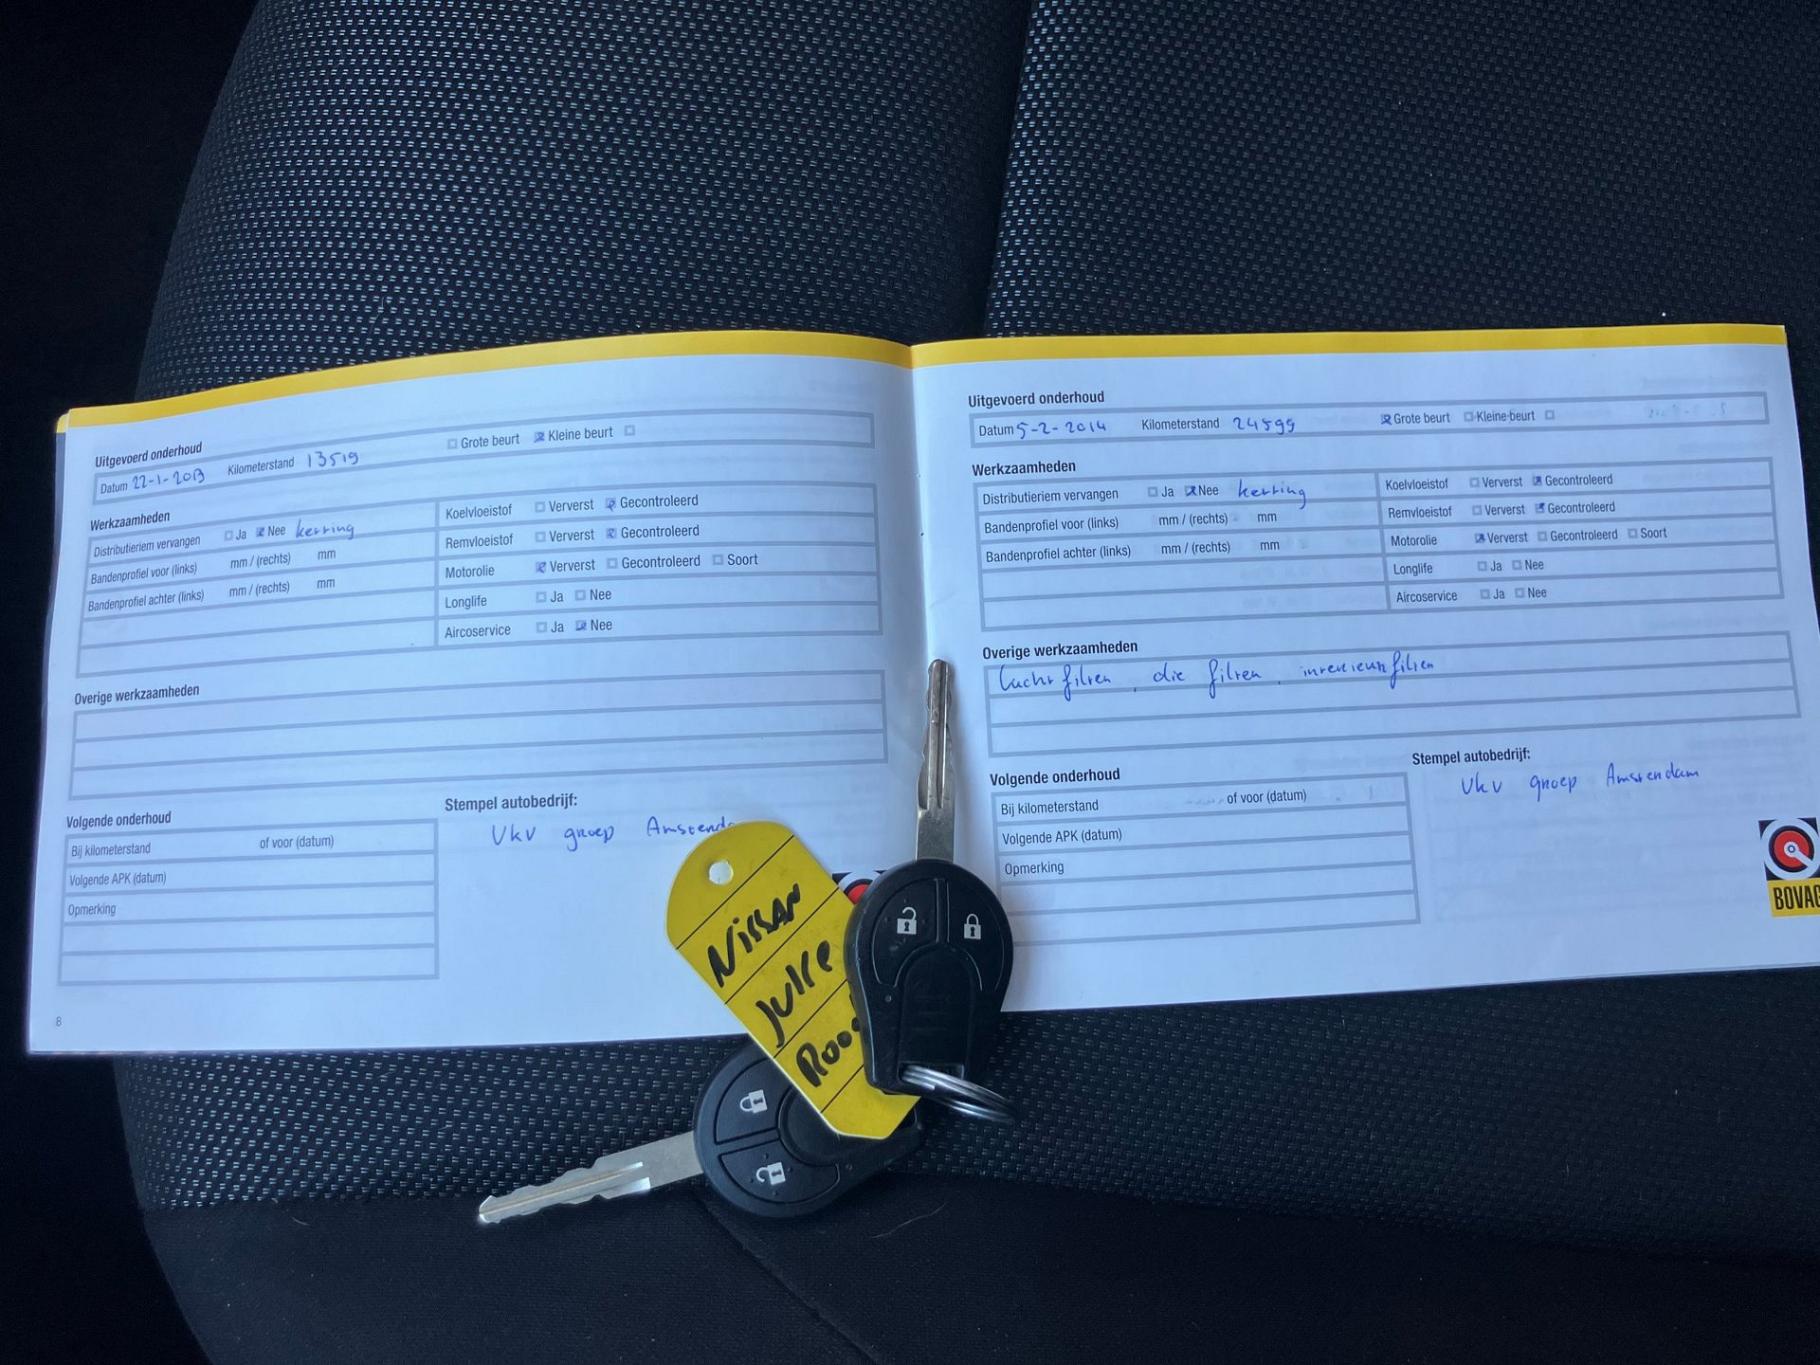 Uitgevoerd onderhoud
Datum 22-1-2013 Kilometerstand 13519 Grote beurt Kleine beurt
Werkzaamheden
Distributieriem vervangen Ja Nee ketting
Bandenprofiel voor (links) mm / (rechts) mm
Bandenprofiel achter (links) mm / (rechts) mm
Koelvloeistof Ververst Gecontroleerd
Remvloeistof Ververst Gecontroleerd
Motorolie Ververst Gecontroleerd Soort
Longlife Ja Nee
Aircoservice Ja Nee
Overige werkzaamheden
Volgende onderhoud
Bij kilometerstand of voor (datum)
Volgende APK (datum)
Opmerking
Stempel autobedrijf:
Vkv groep Amsterda
8
Uitgevoerd onderhoud
Datum 5-2-2014 Kilometerstand 24599 Grote beurt Kleine beurt
Werkzaamheden
Distributieriem vervangen Ja Nee ketting
Bandenprofiel voor (links) mm / (rechts) mm
Bandenprofiel achter (links) mm / (rechts) mm
Koelvloeistof Ververst Gecontroleerd
Remvloeistof Ververst Gecontroleerd
Motorolie Ververst Gecontroleerd Soort
Longlife Ja Nee
Aircoservice Ja Nee
Overige werkzaamheden
Lucht filter, olie filter, interieurfilter
Volgende onderhoud
Bij kilometerstand of voor (datum)
Volgende APK (datum)
Opmerking
Stempel autobedrijf:
Vkv groep Amsterdam
BOVAG
Nissan
Juke
Roo